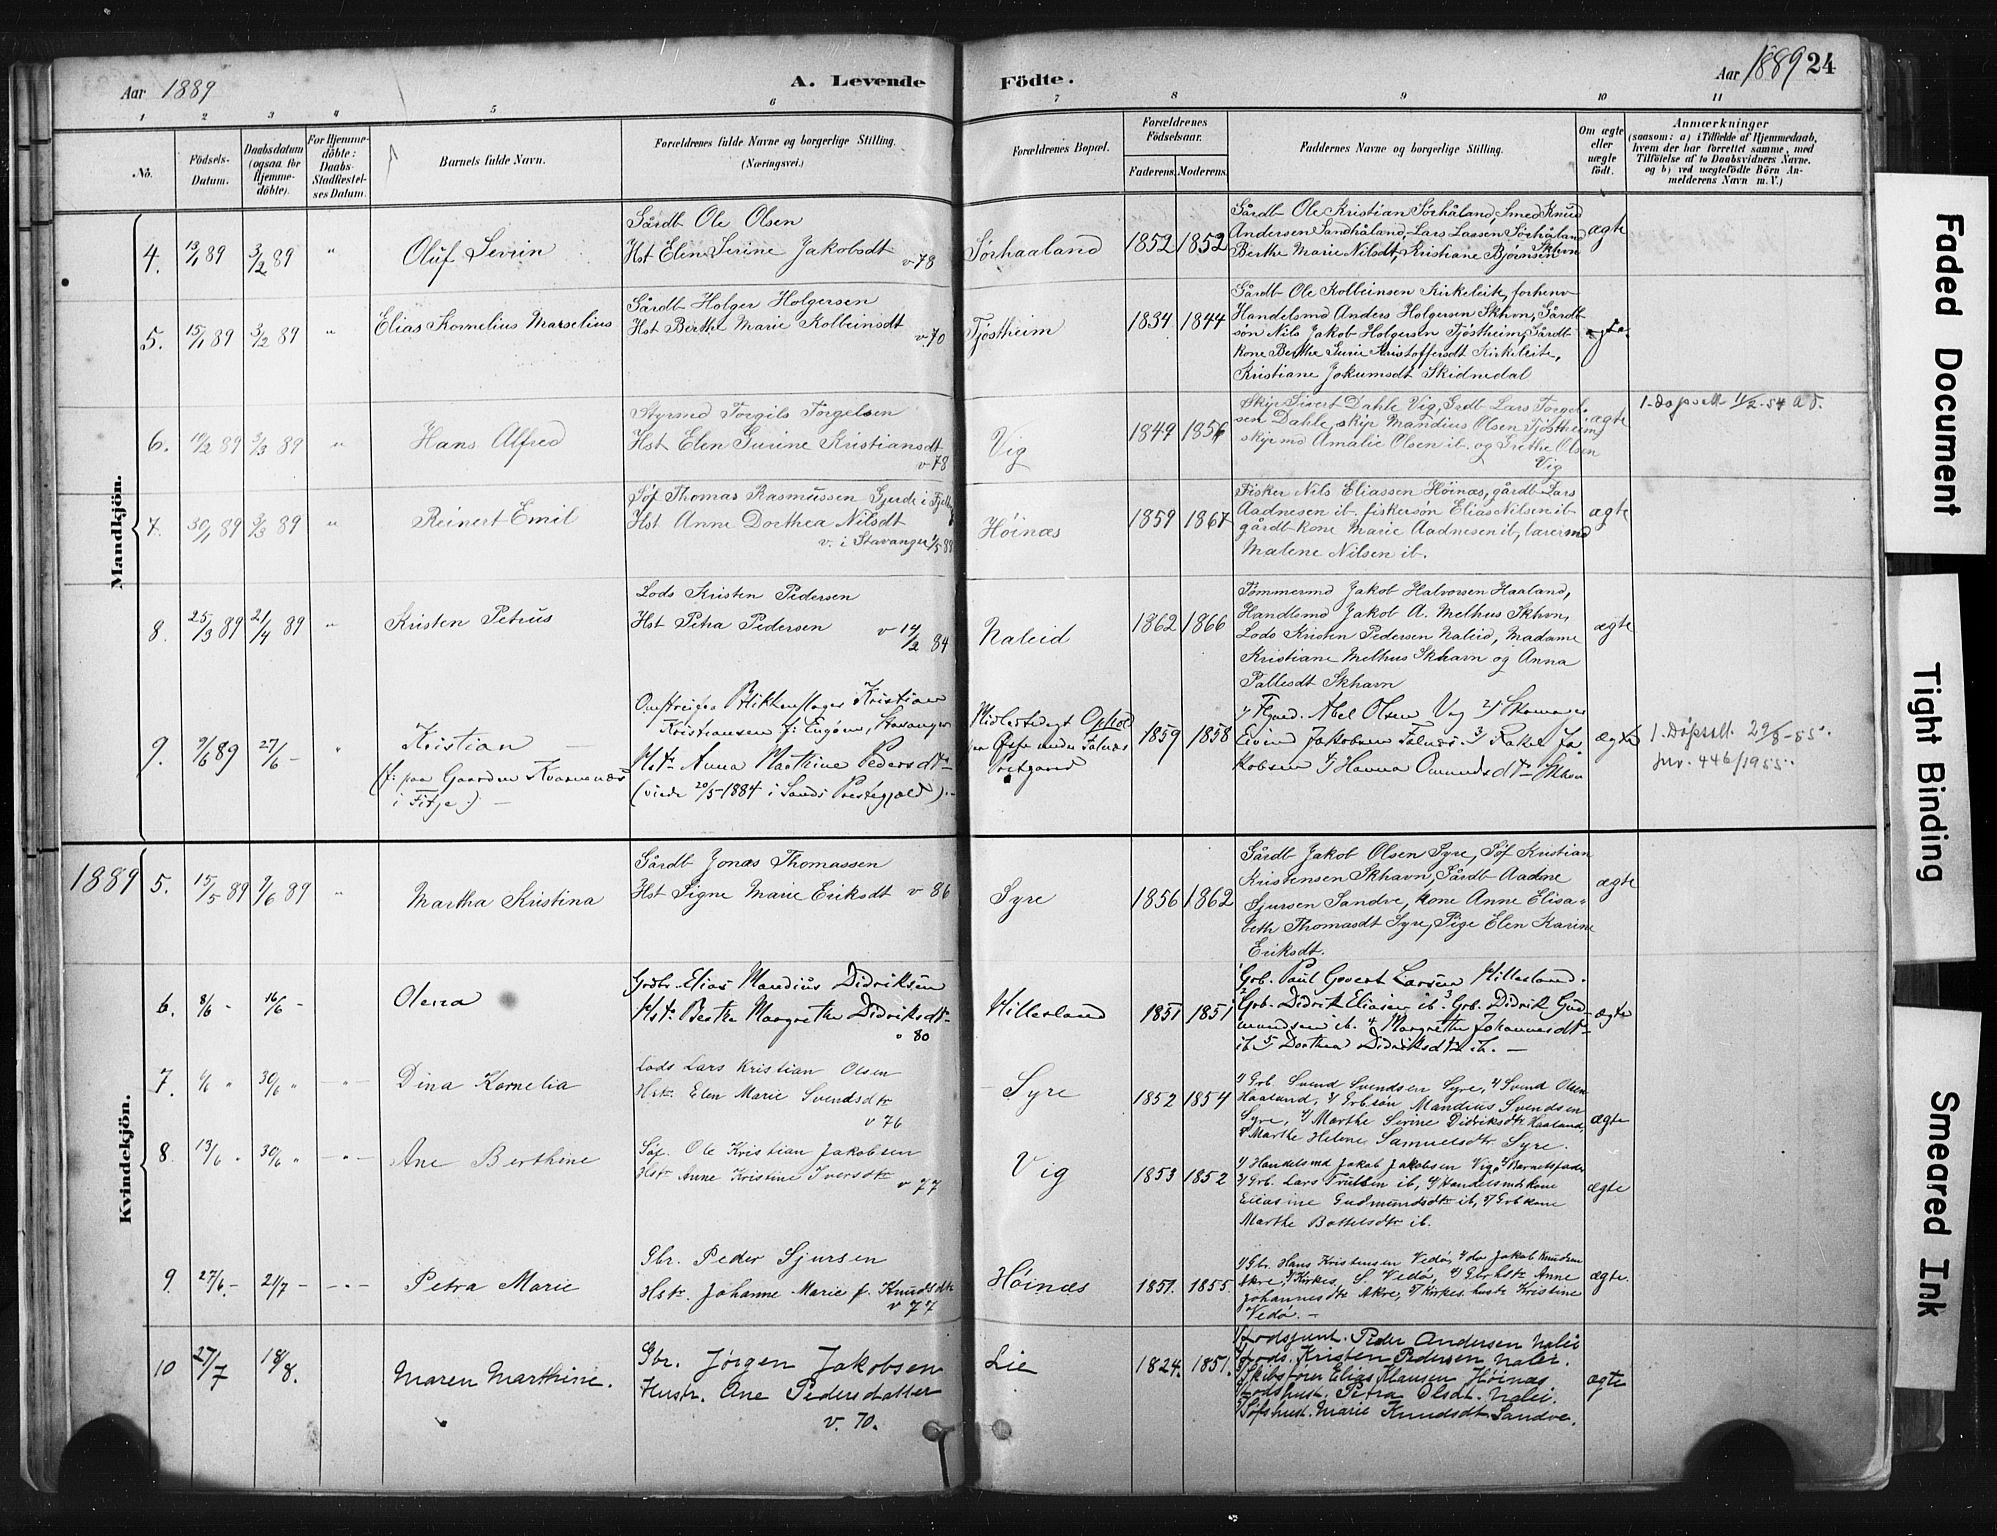 Aar 1889
A. Levende
Födte.
Aar 1889 24
1 2 3 4 5 6 7 8 9 10 11
No.
Födsels-
Datum.
Daabsdatum
(ogsaa for
Hjemme-
döbte).
For Hjemme-
döbte:
Daabs
Stadfæstel-
ses Datum.
Barnets fulde Navn.
Forældrenes fulde Navne og borgerlige Stilling.
(Næringsvei.)
Forældrenes Bopæl.
Forældrenes
Födselsaar.
Faderens. Moderens.
Faddernes Navne og borgerlige Stilling.
Om ægte
eller
uægte
födt.
Anmærkninger
(saasom: a) i Tilfælde af Hjemmedaab,
hvem der har forrettet samme, med
Tilföielse af to Daabsvidners Navne.
og b) ved uægtefödte Börn An-
melderens Navn m. V.)
Mandkjön.
4. 13/1 89 3/2 89 " Oluf Sevrin
Gårdb Ole Olsen
Hst Elen Serine Jakobsdt v 78
Sørhaaland 1852 1852
Gårdb Ole Kristian Sørhåland, Smed Knud
Andersen Sandhåland, Lars Lassen Sørhåland
Berthe Marie Nilsdt, Kristiane Bjørnsen Skhvn
ægte
5. 15/1 89 3/2 89 " Elias Kornelius Marselius
Gårdb Holger Holgersen
Hst Berthe Marie Kolbeinsdt v.70
Tjøstheim 1834 1844
Gårdb Ole Kolbeinsen Kirkeleite, forhenv
Handelsmd Anders Holgersen Skhvn, Gårdb
søn Nils Jakob Holgersen Tjøstheim, Gårdb
kone Berthe Gurie Kristoffersdt Kirkeleite,
Kristiane Jokumsdt Skidnedal
ægte
6. 10/2 89 3/3 89 " Hans Alfred
Styrmd Torgils Torgelsen
Hst Elen Gurine Kristiansdt
v 78
Vig 1849 1856
Skip Sivert Dahle Vig, Grdb Lars Torgel-
sen Dahle, skip Mandius Olsen Tjøstheim
skip md Amalie Olsen ib. og Grethe Olsen
Vig
ægte
1. Døpsatt. 11/2-54
7. 30/1 89 3/3 89 " Reinert Emil
Søf Thomas Rasmussen Gjerde i
Hst Anne Dorthea Nilsdt
v. i Stavanger 1/5 88
Høinæs 1859 1867
Fisker Nils Eliassen Høinæs, gårdb Lars
Aadnesen ib. fiskersøn Elias Nilsen ib
gårdb kone Marie Aadnesen ib, lærermd
Malene Nilsen ib.
ægte
8. 25/3 89 21/4 89 " Kristen Petrus
Lods Kristen Pedersen
Hst Petra Pedersen v 14/2 84
Naleid 1862 1866
Tømmermd Jakob Halvorsen Haaland,
Handlsmd Jakob A. Melhus Skhvn,
Lods Kristen Pedersen Naleid, Madame
Kristiane Melhus Skhavn og Anna
Pallesdt Skhavn
ægte
9. 9/6 89 27/6 - " Kristian —
(f: paa Gaarden Kvarnenæs
i Fitje.) —
Omstreifer Blikkenslager Kristian
Kristiansen f: Engøen, Stavanger
Hst. Anna Marthine Pedersdtr
(viede 20/5-1884 i Sands Prestegjæld).-
Midlertidigt Ophold
paa Østre under Falnæs
Prstgaard
1859 1858
1/ Fgaard. Abel Olsen Vig 2/ Skomager
Eivind Jakobsen Falnæs. 3 Rakel Ja-
kobsen 4/ Hanna Omundsdtr Skhvn
ægte
1. Døpsatt. 29/8-55.
Jnr. 446/1955.
Kvindekjön.
1889 5. 15/5 89 9/6 89 " Martha Kristina
Gårdb Jonas Thomassen
Hst Signe Marie Eriksdt v 86
Syre 1856 1862
Gårdb Jakob Olsen Syre, Søf Kristian
Kristensen Skhavn, Gårdb Aadne
Sjursen Sandve, kone Anne Elisa-
beth Thomasdt Syre, Pige Elen Karine
Eriksdt.
ægte
6. 8/6 - 16/6 - Olena
Grdbr. Elias Mandius Didriksen
Hst. Berthe Margrethe Didriksdtr
v 80
Hillesland 1851 1851
Grb. Paul Govert Larsen Hillesland.
2 Grb. Didrik Eliasen ib. 3 Grb. Didrik Gud-
mundsen ib. 4 Margrethe Johannesdtr
ib. 5 Dorthea Didriksdtr ib. —
ægte
7. " 30/6 " Dina Kornelia
Lods Lars Kristian Olsen
Hstr. Elen Marie Svendsdtr
v 76
Syre 1852 1854
1/ Grb Svend Svendsen Syre, 2/ Svend Olsen
Haaland, 3/ Grbsøn Mandius Svendsen
Syre, 4/ Marthe Serine Didriksdtr Haaland,
5 Marthe Helene Samuelsdtr. Syre.
ægte
8. 13/6 " 30/6 " Ane Berthine
Søf. Ole Kristian Jakobsen
Hstr Anne Kristine Iversdtr
v 77
Vig 1853 1852
1/ Handelsmd Jakob Jakobsen Vig, 2/ Barnets fader
3/ Grb Lars Trulsen ib, 4/ Handelsmdskone
Eliasine Gudmundsdtr ib, 5/ Grbkone
Marthe Bottelsdtr ib.
ægte
9. 27/6. - 21/7 - Petra Marie
Gbr. Peder Sjursen
Hstr. Johanne Marie f. Knudsdtr
v 77
Høinæs 1851. 1855.
1/ Gbr. Hans Kristensen Vedø, 2/ do Jakob Knudsen
Akre, 3/ Kirkes. S. Vedø, 4/ Gbrhstr Anne
Johannesdtr Akre, 5/ Kirkes. hustr Kristine
Vedø. —
ægte.
10 27/7 18/8. Maren Marthine.
Gbr. Jørgen Jakobsen
Hustr. Ane Pedersdatter
v. 70.
Lie 1824. 1851.
1/ Lods Peder Andersen Nalei
2/ Lods. Kristen Pedersen Nalei.
3/ Skibsfører Elias Klausen Høinæs
4/ Lodshust. Petra Olsdt. Nalei.
5/ Søfshust. Marie Knudsdt Sandve.
ægte
Faded Document
Tight Binding
Smeared Ink